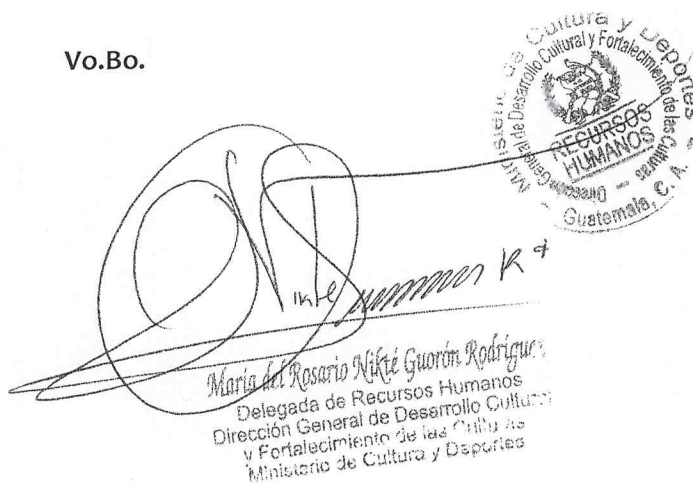 Vo.Bo.
Ministerio de Cultura y Deportes
Dirección General de Desarrollo Cultural y Fortalecimiento de las Culturas
RECURSOS
HUMANOS
Guatemala, C. A.
María del Rosario Nikté Guorón Rodríguez
Delegada de Recursos Humanos
Dirección General de Desarrollo Cultural
y Fortalecimiento de las Culturas
Ministerio de Cultura y Deportes